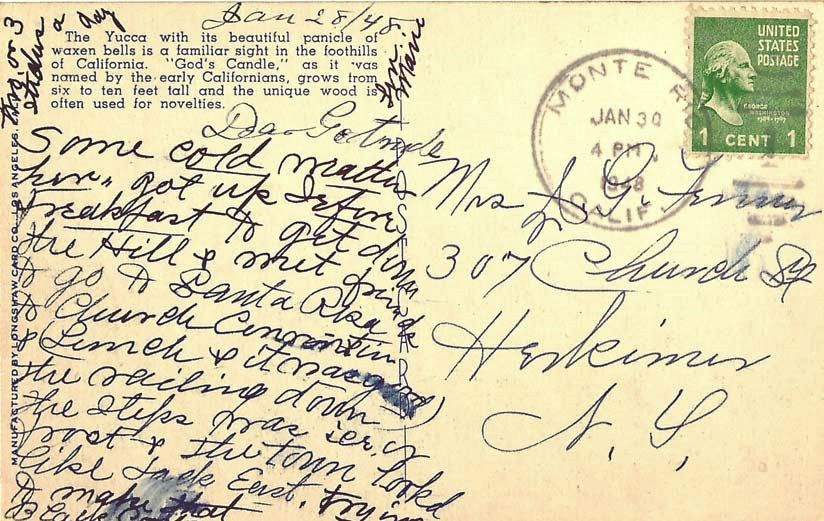 Jan 28/48
The Yucca with its beautiful panicle of
waxen bells is a familiar sight in the foothills
of California. "God's Candle," as it was
named by the early Californians, grows from
six to ten feet tall and the unique wood is
often used for novelties.
Dear Gertrude
Some cold
here, got up before
breakfast to get down
the Hill & met
to go to Santa Rosa
to Church Convention
& Lunch & it was good
the railing down
the steps was icy
frost & the town looked
like back East. trying
to make that
2 or 3
a day
Love
Marie
MANUFACTURED BY LONGSHAW CARD CO., LOS ANGELES,
MONTE RIO
JAN 30
4 PM
1948
CALIF.
UNITED
STATES
POSTAGE
GEORGE
WASHINGTON
1789-1797
1 CENT 1
Mrs L G
307 Church St
Herkimer
N. Y.